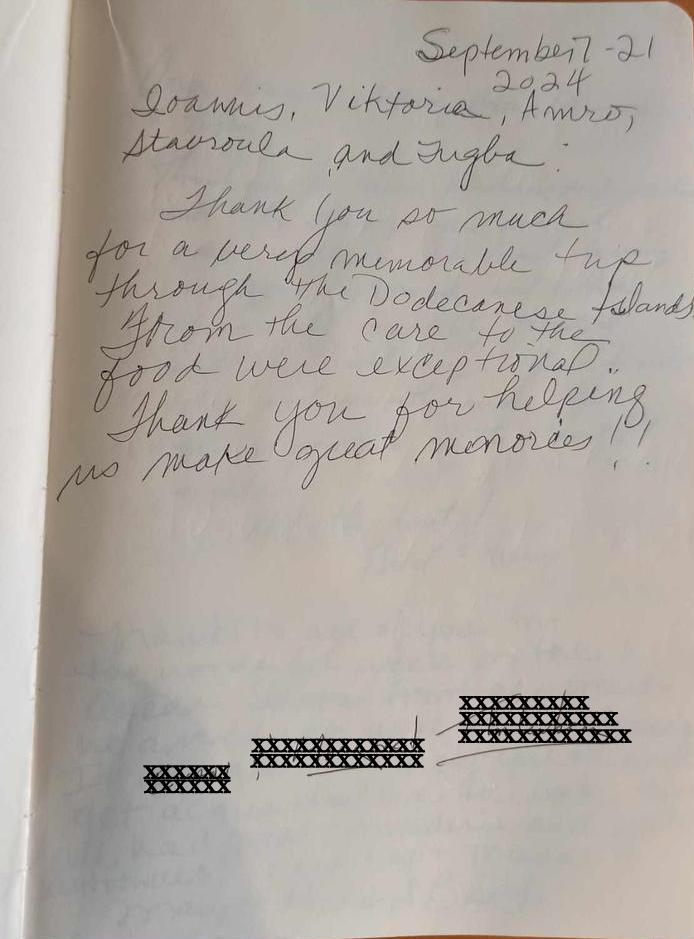 September 7-21
2024
Ioannis, Viktoria, Amro,
Stavroula and Tugba:
Thank you so much
for a very memorable trip
through the Dodecanese Islands
From the care to the
food were exceptional..
Thank you for helping
us make great memories!!